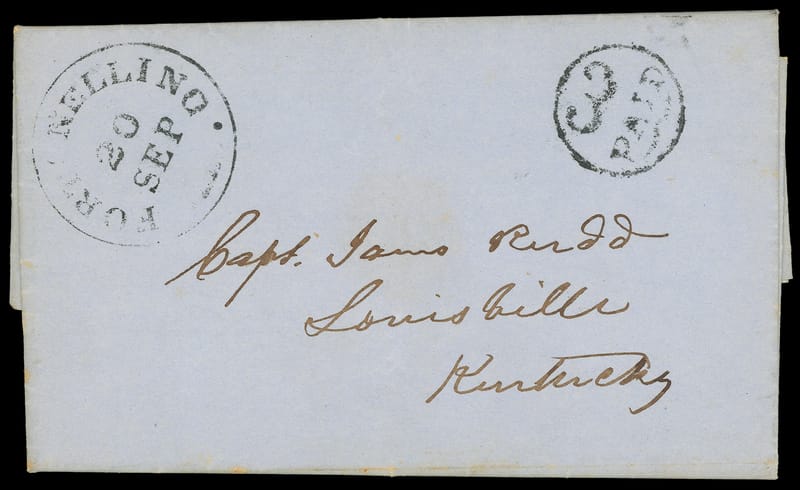 FORT SNELLING.
20
SEP
3
PAID
Capt. Jams Rudd
Louisville
Kentucky